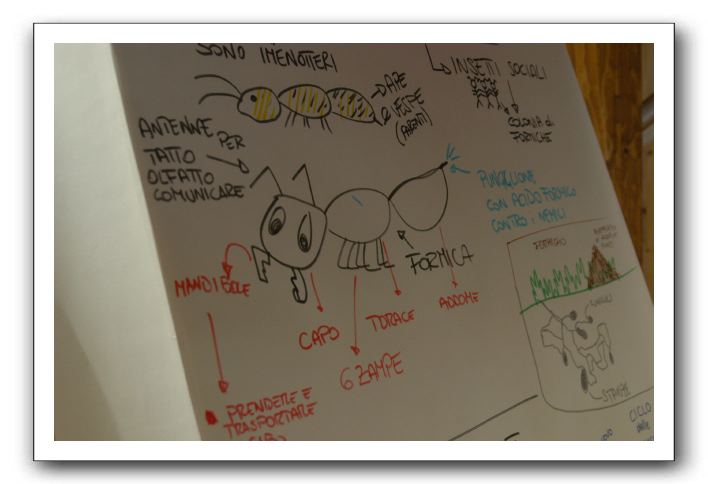 SONO IMENOTTERI
INSETTI SOCIALI
APE
VESPE
COLONIA di
FORMICHE
ANTENNE PER
TATTO
OLFATTO
COMUNICARE
PUNGIGLIONE
CON ACIDO FORMICO
CONTRO i NEMICI
FORMICA
FORMICAIO
MANDIBOLE
CAPO
TORACE
ADDOME
6 ZAMPE
CUNICOLI
STANZE
PRENDERE E
TRASPORTARE
CIBO
CICLO